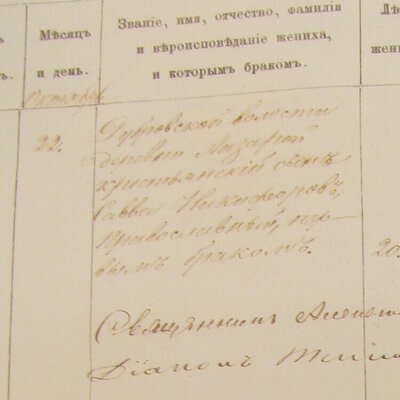 Мѣсяцъ
и день.
Званіе, имя, отчество, фамилія
и вѣроисповѣданіе жениха,
и которымъ бракомъ.
Лѣ
жени
Октябрь
22.
Дубровской волости
деревни
крестьянскій сынъ
Савва Никифоровъ,
православный, пер-
вымъ бракомъ.
20.
Священникъ
Діаконъ